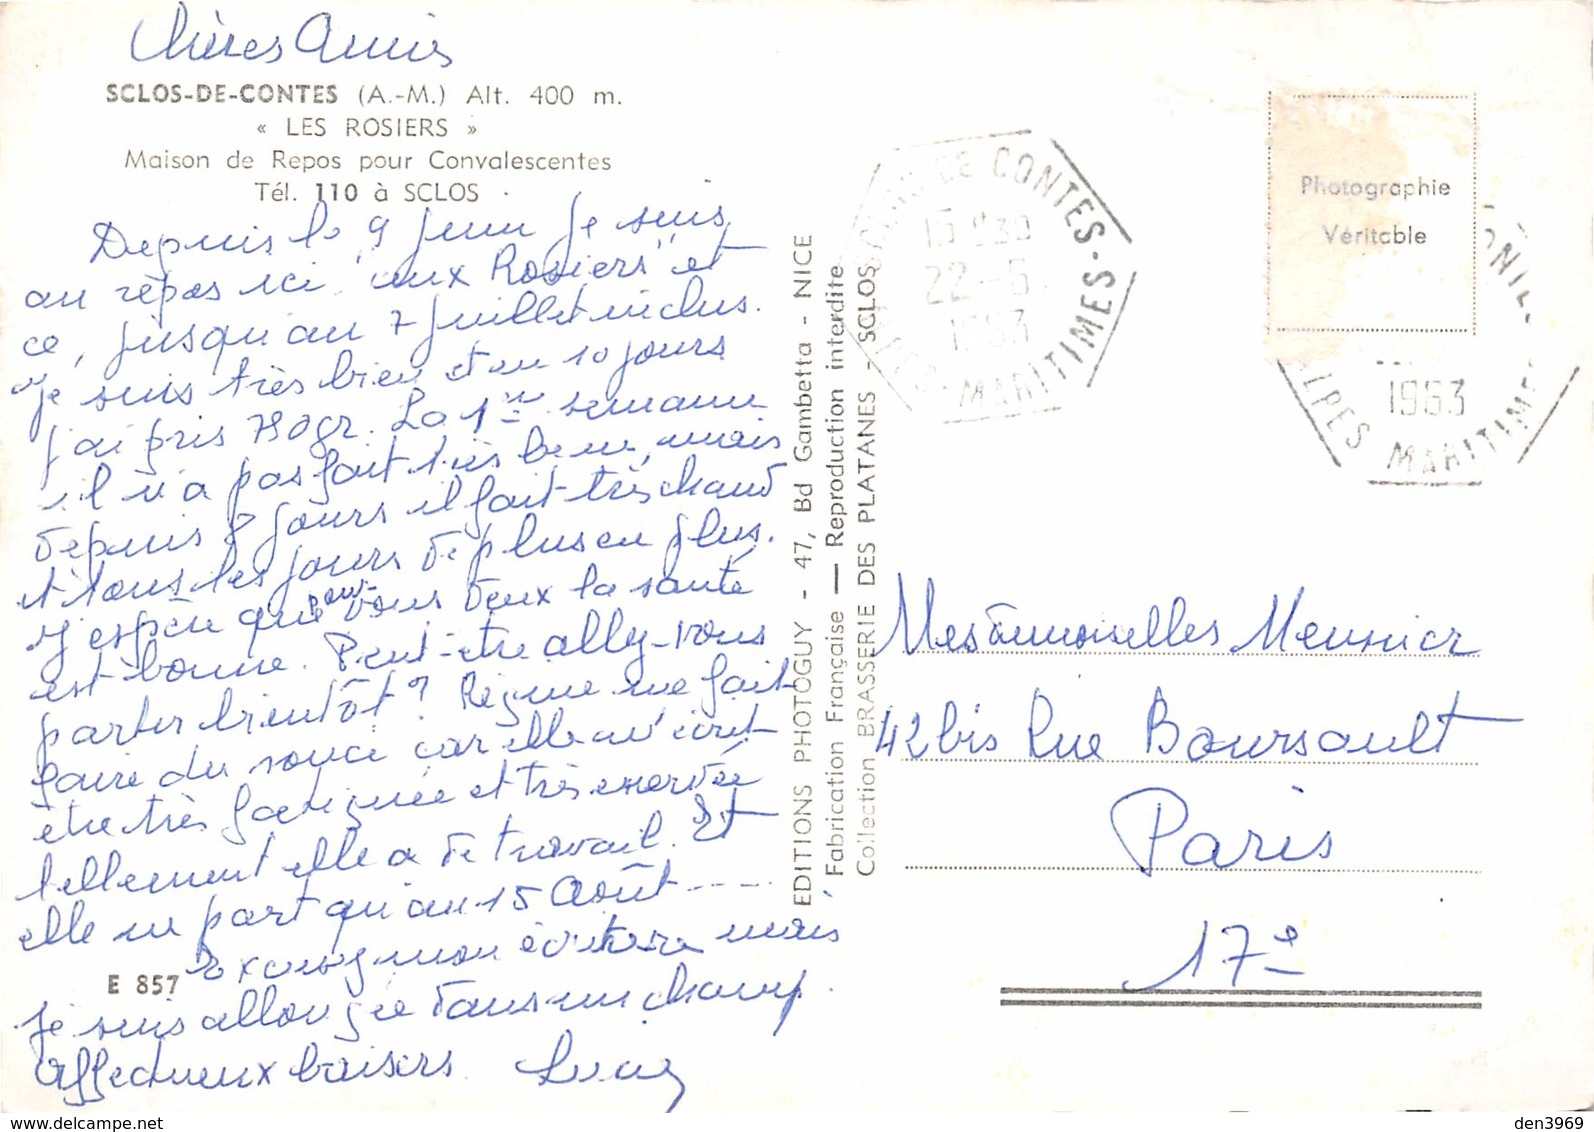 Chères Amies
SCLOS-DE-CONTES (A.-M.) Alt. 400 m.
« LES ROSIERS »
Maison de Repos pour Convalescentes
Tél. 110 à SCLOS
Depuis le 9 juin je suis
au repos ici "aux Rosiers" et
ce, jusqu'au 7 juillet inclus.
Je suis très bien et en 10 jours
j'ai pris 780gr. La 1ère semaine
il n'a pas fait très beau, mais
depuis 8 jours il fait très chaud
et tous les jours de plus en plus.
J'espère que pour vous deux la santé
est bonne. Peut-être allez-vous
partir bientôt? Régine me fait
faire du souci car elle m'écrit
être très fatiguée et très énervée
tellement elle a de travail. Et
elle ne part qu'au 15 Août ----
Excusez mon écriture mais
E 857
je suis allongée dans un champ.
Affectueux baisers Lucy
EDITIONS PHOTOGUY - 47, Bd Gambetta - NICE
Fabrication Française — Reproduction interdite
Collection BRASSERIE DES PLATANES - SCLOS
DE CONTES
22-6
1963
MARITIMES
Photographie
Véritable
1963
ALPES MARITIMES
Mesdemoiselles Meunier
42bis Rue Boursault
Paris
17e
den3969